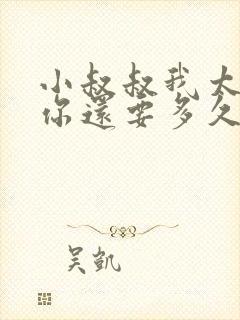 小叔叔我太
你還要多久
吴凱